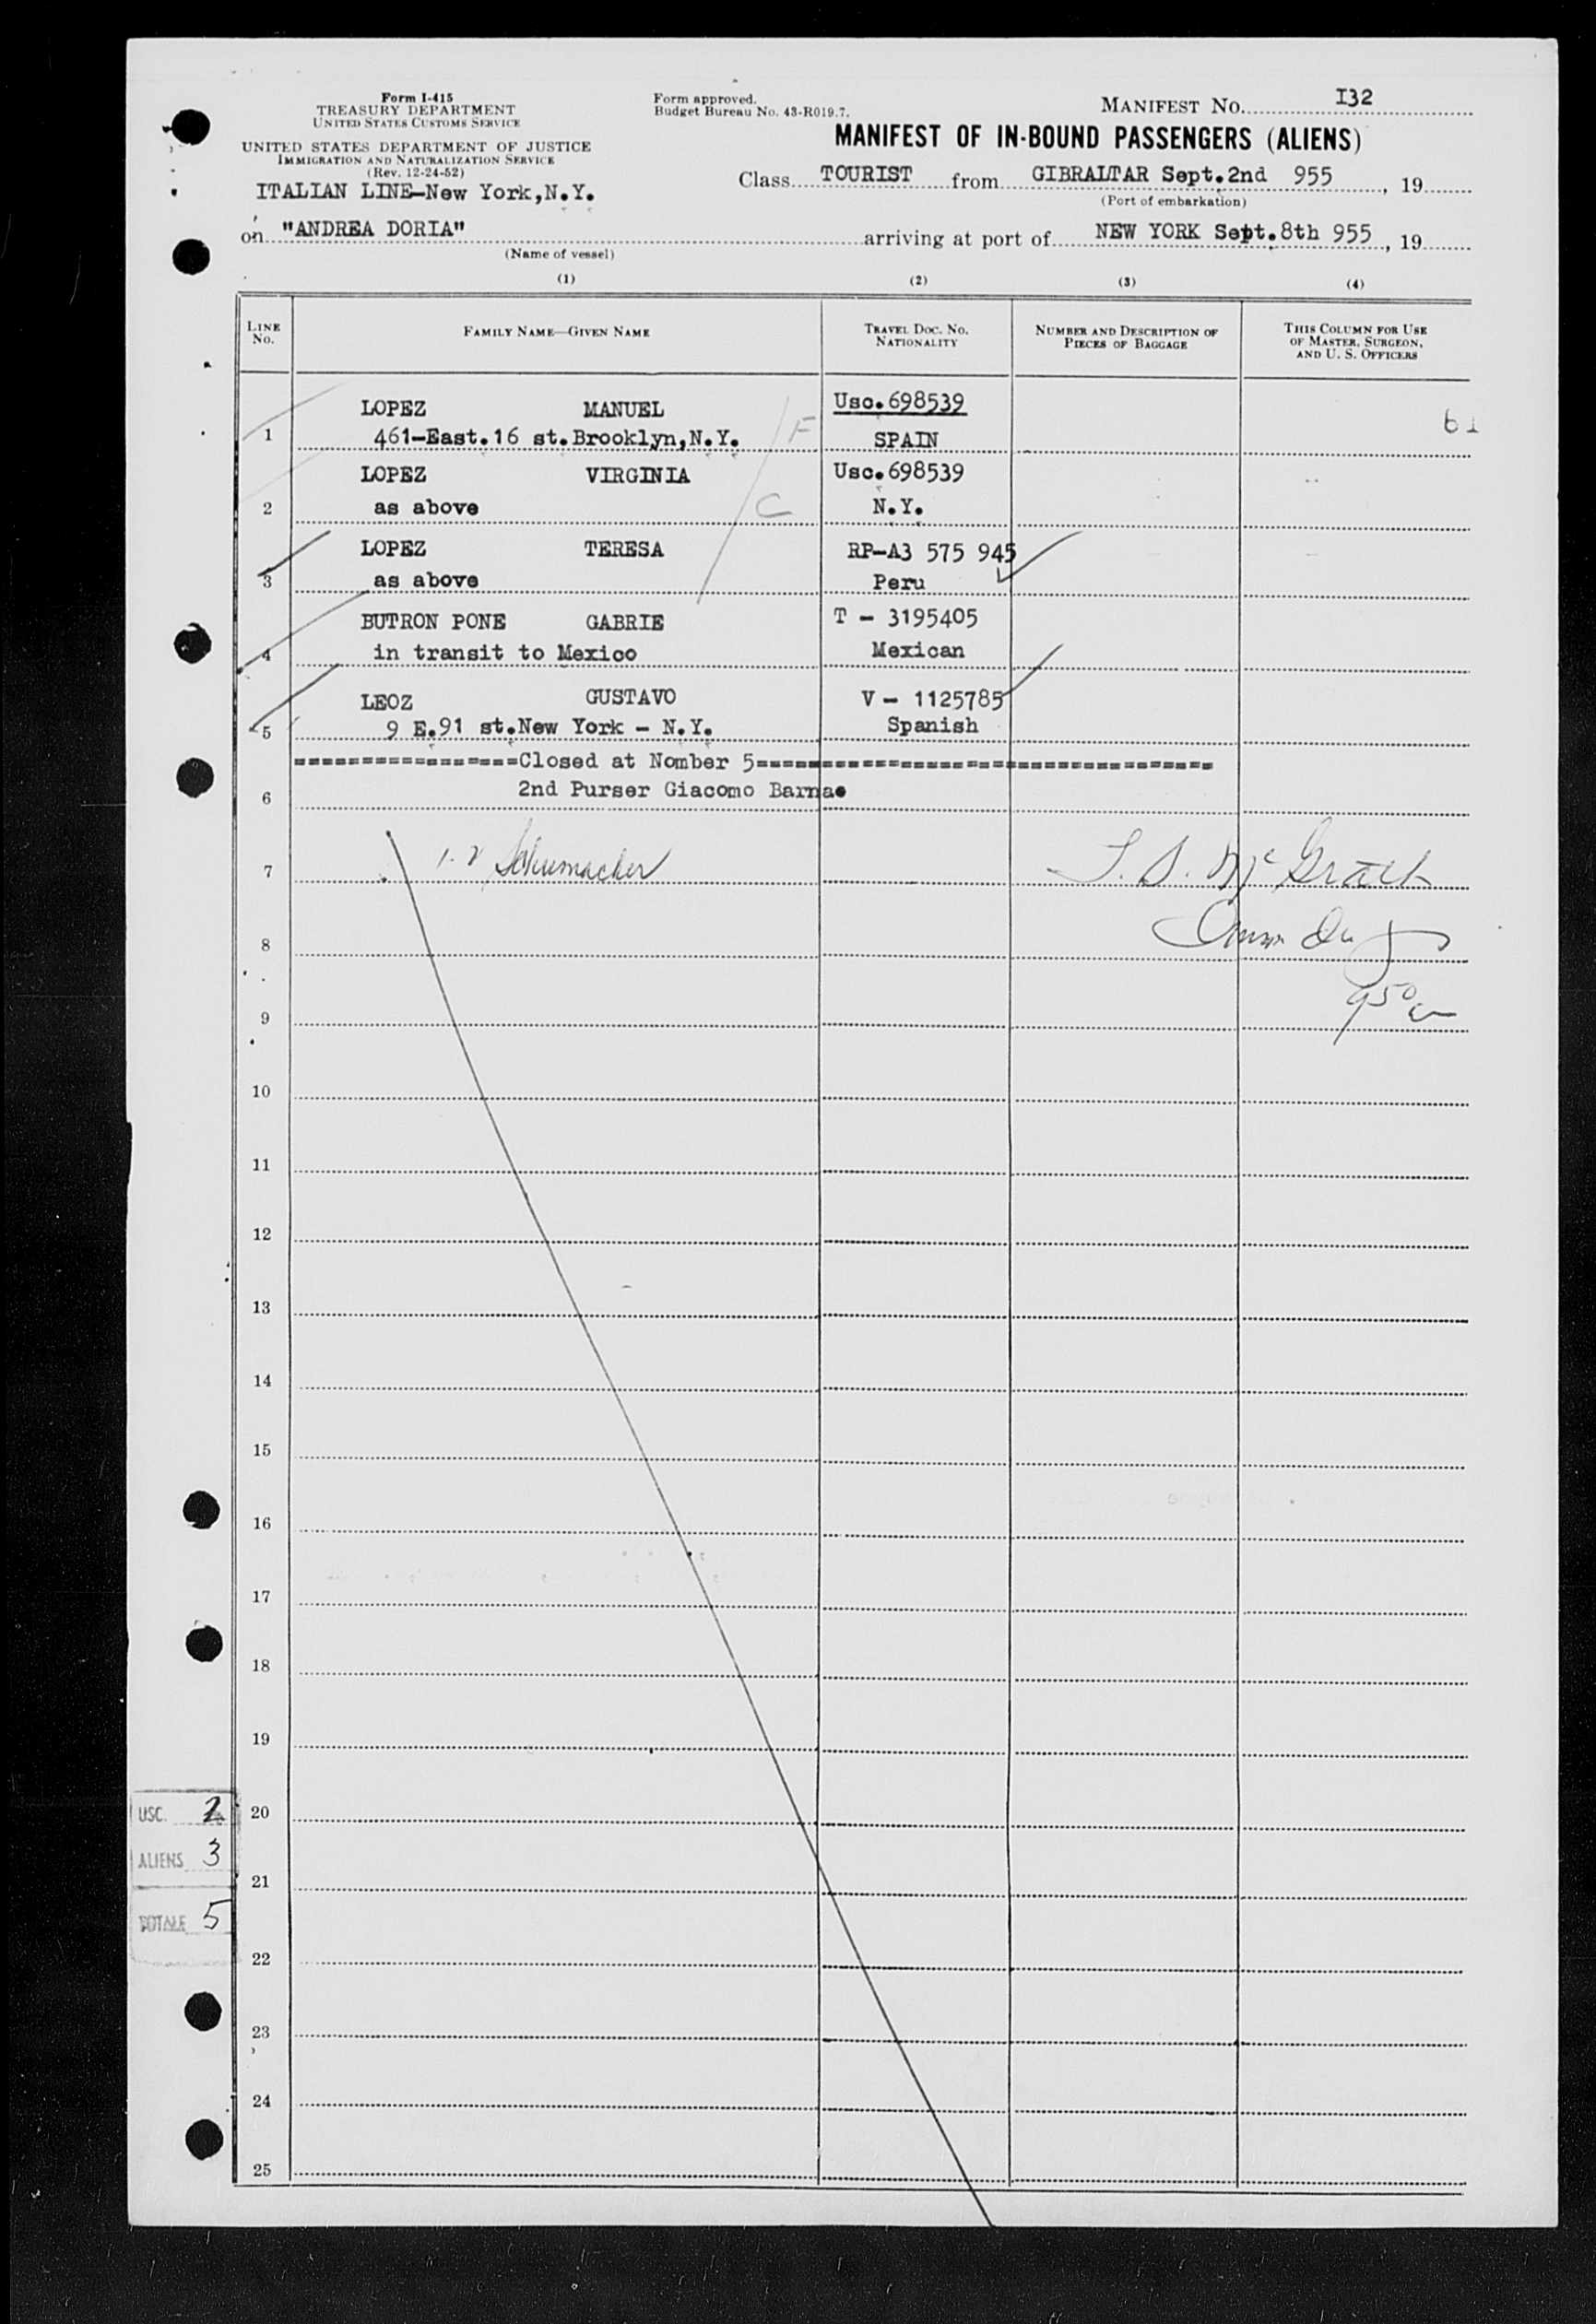 Form I-415
TREASURY DEPARTMENT
UNITED STATES CUSTOMS SERVICE
UNITED STATES DEPARTMENT OF JUSTICE
IMMIGRATION AND NATURALIZATION SERVICE
(Rev. 12-24-52)
ITALIAN LINE-New York, N.Y.
Form approved.
Budget Bureau No. 43-R019.7.
MANIFEST NO. I32
MANIFEST OF IN-BOUND PASSENGERS (ALIENS)
Class TOURIST from GIBRALTAR Sept. 2nd 955, 19
(Port of embarkation)
on "ANDREA DORIA" arriving at port of NEW YORK Sept. 8th 955, 19
(Name of vessel)
(1) (2) (3) (4)
LINE No. FAMILY NAME—GIVEN NAME TRAVEL DOC. NO. NATIONALITY NUMBER AND DESCRIPTION OF PIECES OF BAGGAGE THIS COLUMN FOR USE OF MASTER, SURGEON, AND U. S. OFFICERS
LOPEZ MANUEL Usc. 698539
1 461-East. 16 st. Brooklyn, N.Y. F SPAIN 61
LOPEZ VIRGINIA Usc. 698539
2 as above C N.Y.
LOPEZ TERESA RP-A3 575 945
3 as above Peru
BUTRON PONE GABRIE T - 3195405
4 in transit to Mexico Mexican
LEOZ GUSTAVO V - 1125785
5 9 E. 91 st. New York - N.Y. Spanish
================Closed at Nomber 5==================================
6 2nd Purser Giacomo Barnae
7 Schumacher McGrath
8
9 950
10
11
12
13
14
15
16
17
18
19
USC. 2 20
ALIENS 3
21
TOTALE 5
22
23
24
25